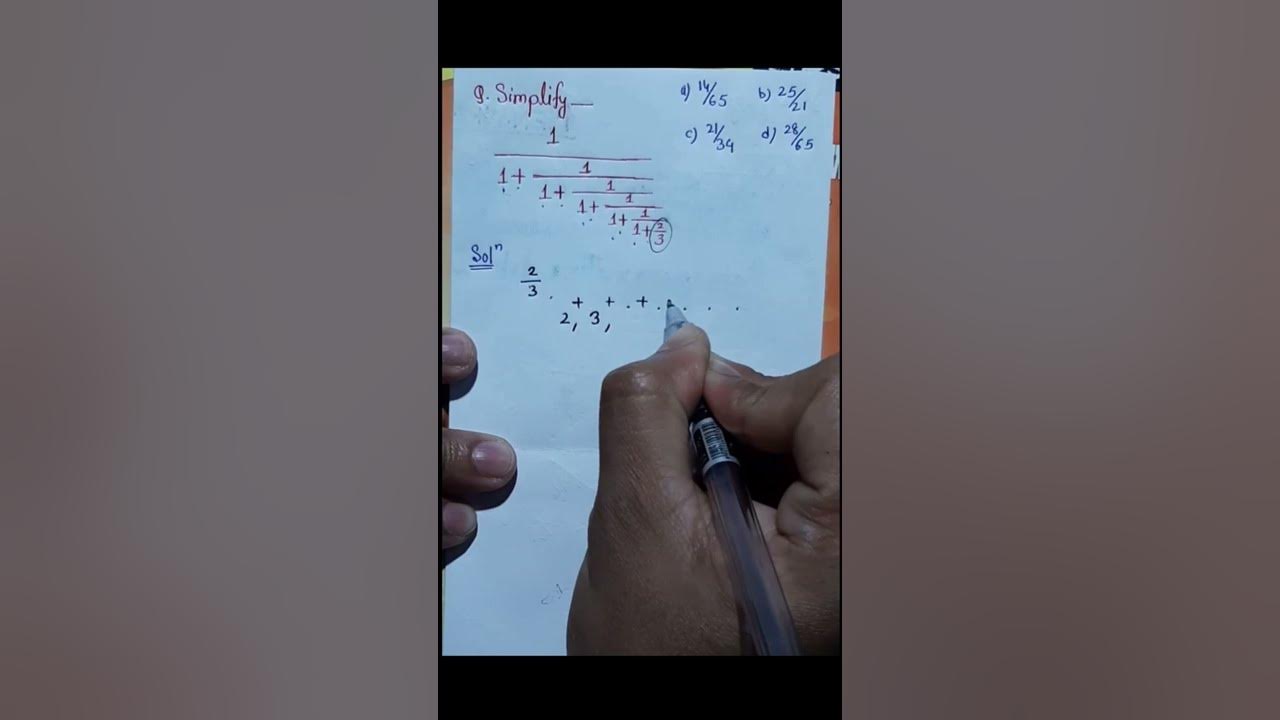 Q. Simplify —
a) 14/65 b) 25/21
c) 21/34 d) 28/65
1
1 + 1
1 + 1
1 + 1
1 + 1
1 + 2/3
Solⁿ
2/3 . + + . + . . . .
2, 3,